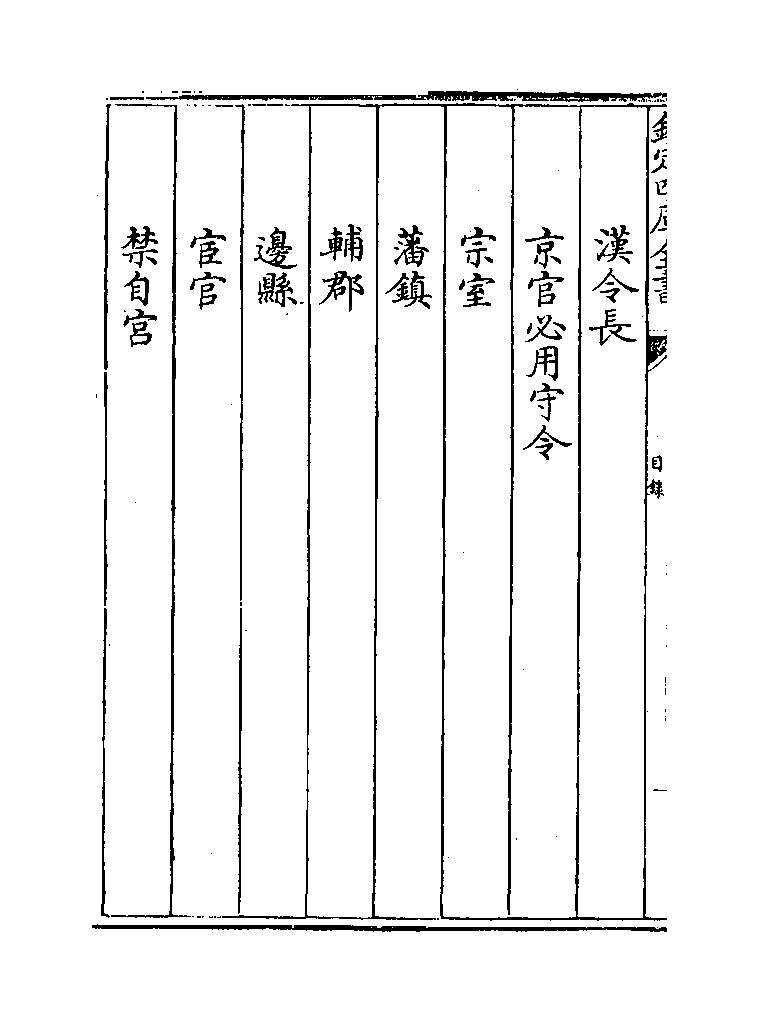 欽定四庫全書
目錄
漢令長
京官必用守令
宗室
藩鎮
輔郡
邊縣
宦官
禁自宮